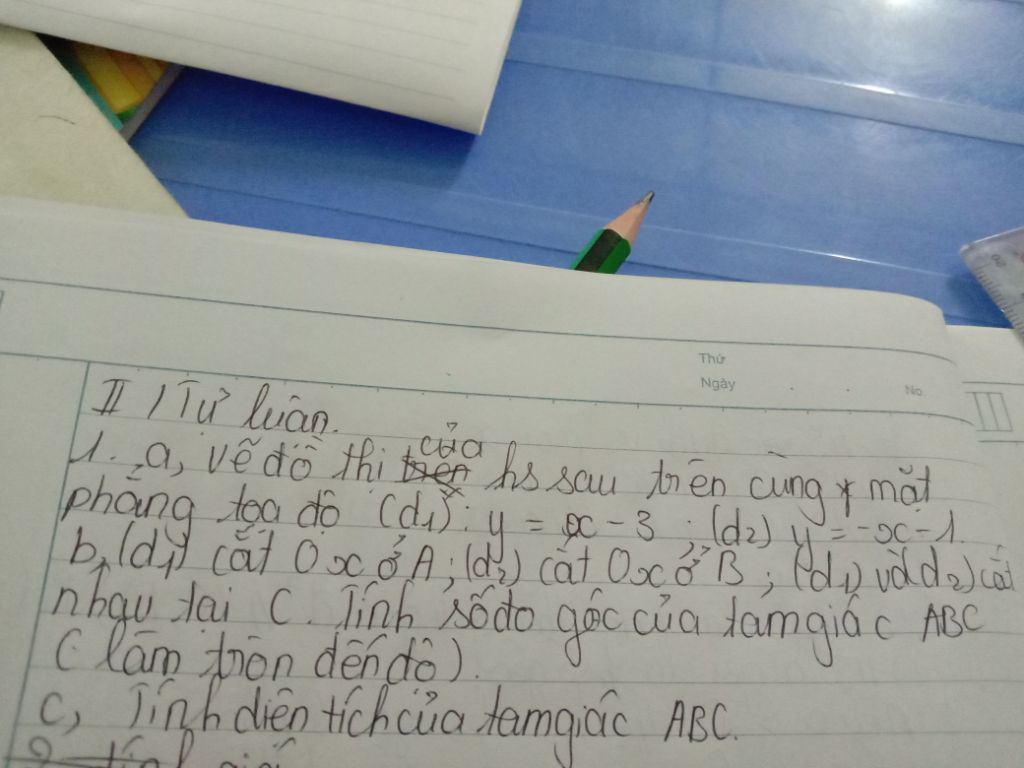 Thứ
Ngày
No.
II / Tự luận.
1. a, vẽ đồ thị của hs sau trên cùng 1 mặt
phẳng tọa độ (d1): y = x - 3 ; (d2) y = -x - 1.
b, (d1) cắt Ox ở A ; (d2) cắt Ox ở B ; (d1) và (d2) cắt
nhau tại C. Tính số đo góc của tam giác ABC
( làm tròn đến độ).
c, Tính diện tích của tam giác ABC.